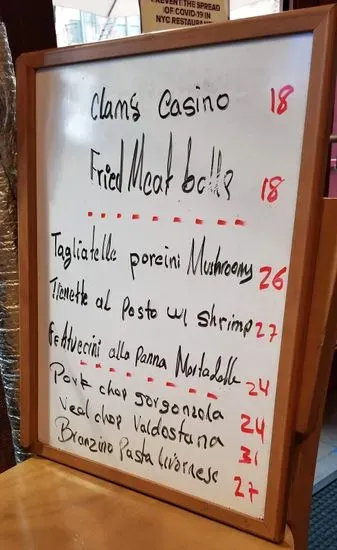 PREVENT THE SPREAD
OF COVID-19 IN
NYC RESTAURANTS
Clams Casino 18
Fried Meat balls 18
Tagliatelle porcini Mushrooms 26
Trenette al Pesto w/ Shrimp 27
Fettuccini alla Panna Mortadella 24
Pork chop gorgonzola 24
Veal chop Valdostana 31
Branzino Pasta Livornese 27